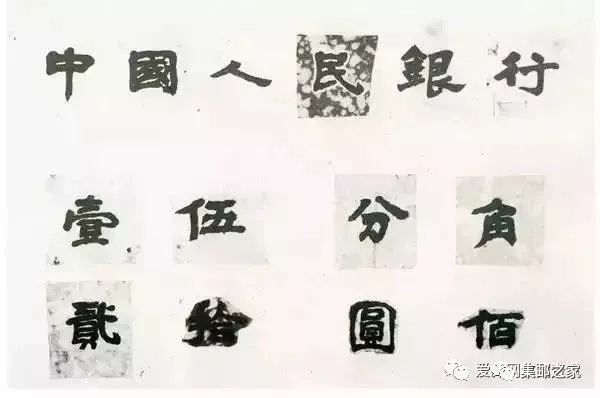 中國人民銀行
壹伍分角
貳拾圓佰
爱 网集邮之家